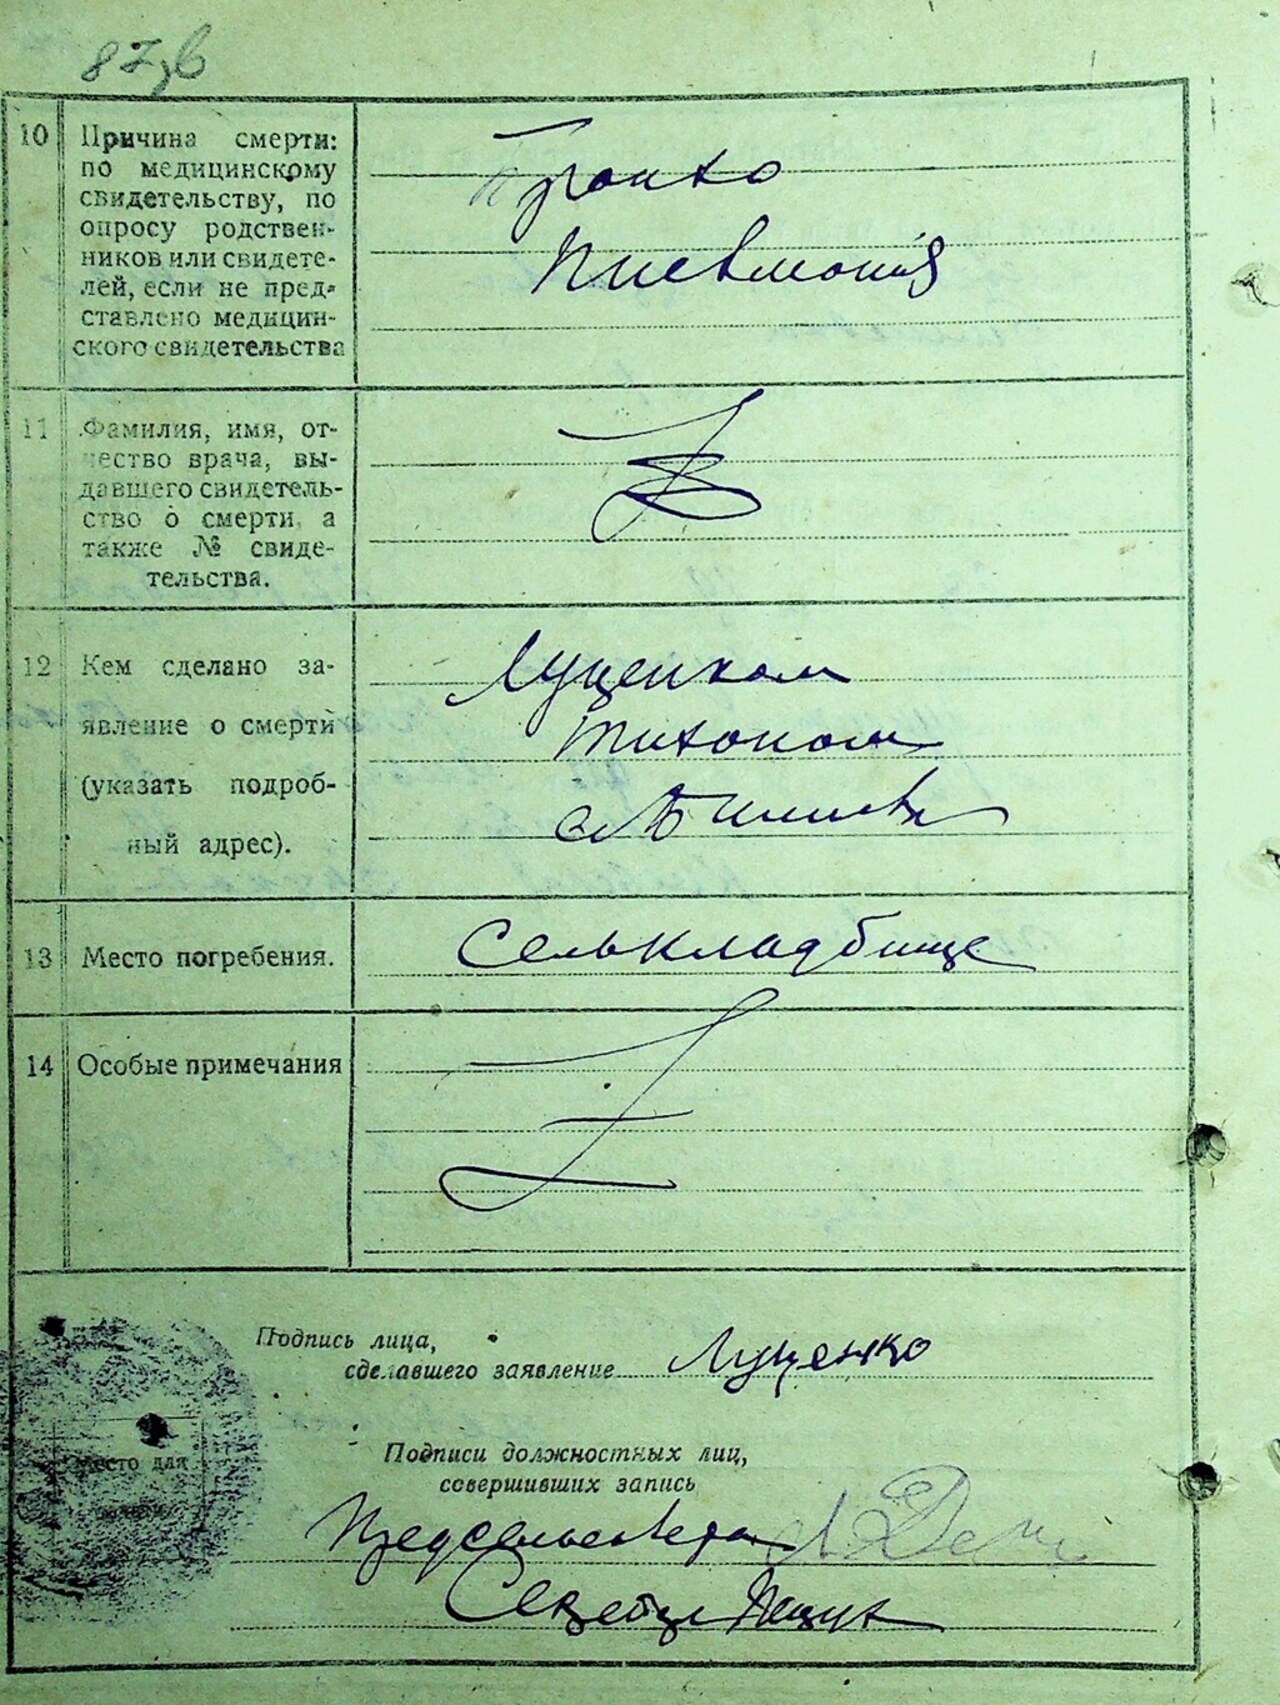 87об
10 Причина смерти:
по медицинскому
свидетельству, по
опросу родствен-
ников или свидете-
лей, если не пред-
ставлено медицин-
ского свидетельства
Бронхо
Пневмония
11 Фамилия, имя, от-
чество врача, вы-
давшего свидетель-
ство о смерти, а
также № свиде-
тельства.
12 Кем сделано за-
явление о смерти
(указать подроб-
ный адрес).
Луценком
Тихоном
13 Место погребения.
Селькладбище
14 Особые примечания
Подпись лица,
сделавшего заявление
Луценко
Место для
Подписи должностных лиц,
совершивших запись
Предсельсовета